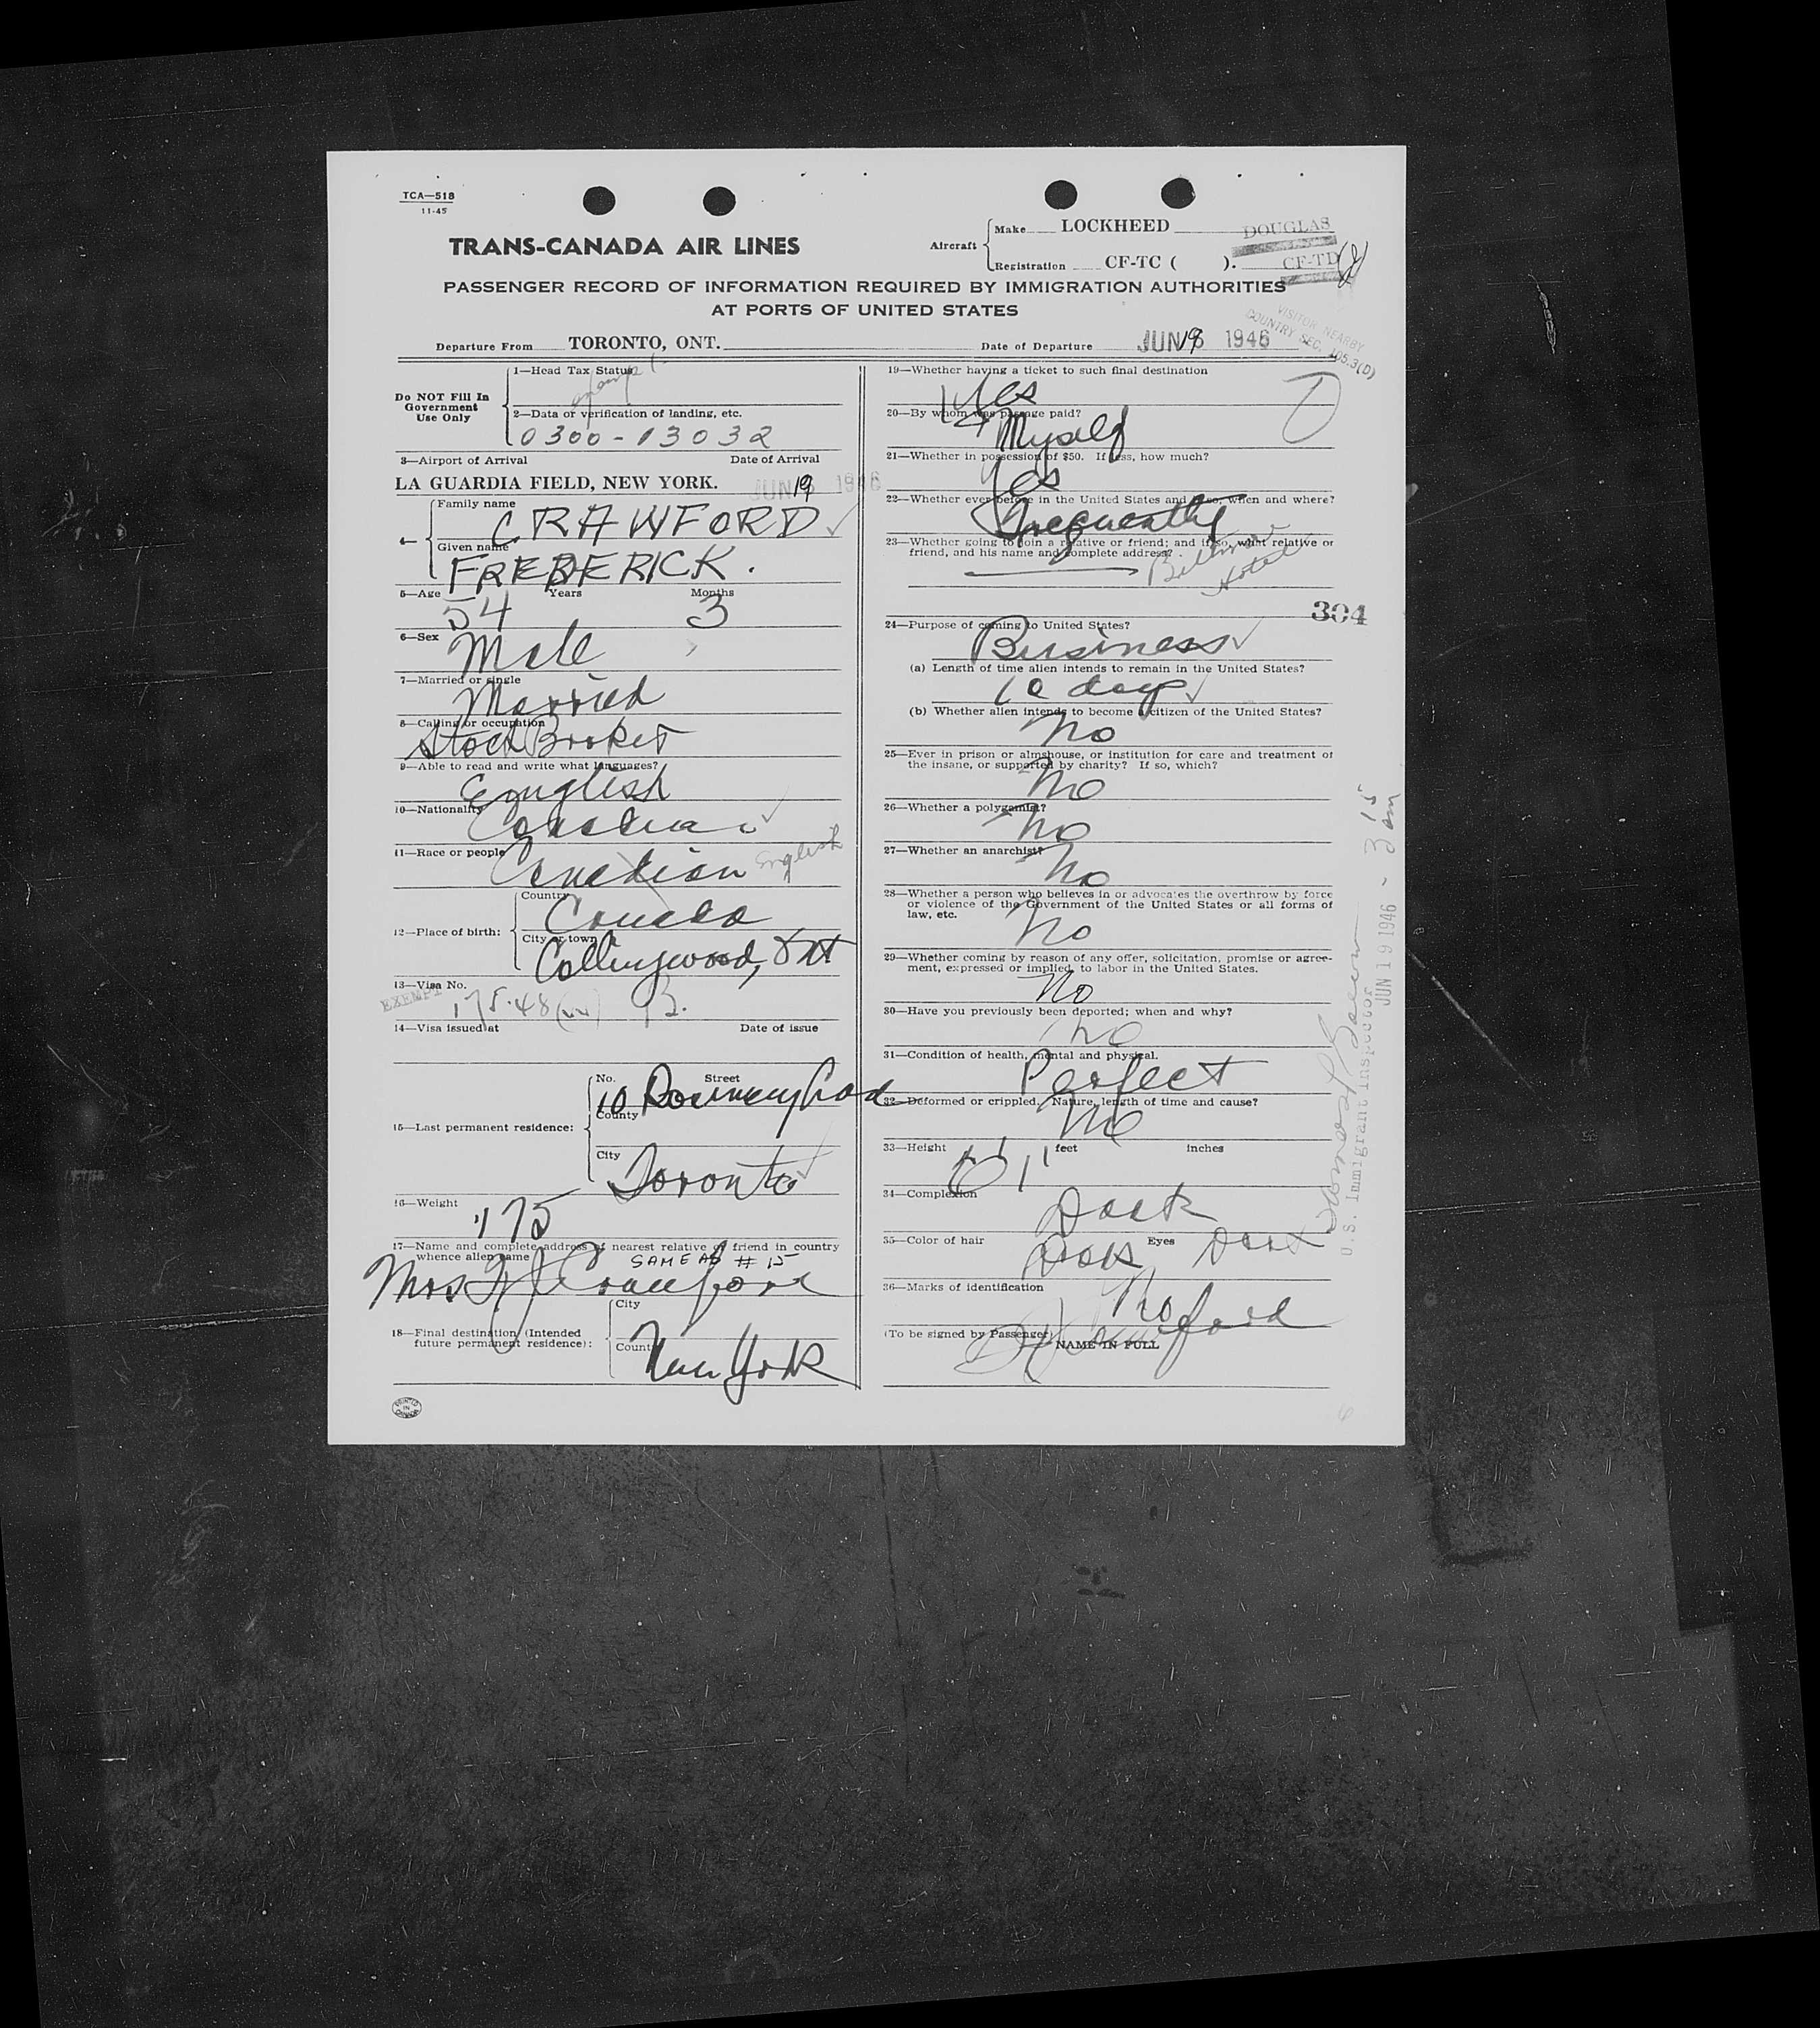 TCA—518
11-45
TRANS-CANADA AIR LINES
Aircraft
Make LOCKHEED
DOUGLAS
Registration CF-TC ( ).
CF-TD
PASSENGER RECORD OF INFORMATION REQUIRED BY IMMIGRATION AUTHORITIES
AT PORTS OF UNITED STATES
VISITOR NEARBY
COUNTRY SEC. 105.3(D)
Departure From TORONTO, ONT.
Date of Departure JUN 19 1946
Do NOT Fill In
Government
Use Only
1—Head Tax Status
2—Data or verification of landing, etc.
0300-13032
3—Airport of Arrival Date of Arrival
LA GUARDIA FIELD, NEW YORK. JUN 19 1946
4—
Family name
CRAWFORD
Given name
FREDERICK.
5—Age 54 Years 3 Months
6—Sex Male
7—Married or single
Married
8—Calling or occupation
Stock Broker
9—Able to read and write what languages?
English
10—Nationality
Canadian
11—Race or people
Canadian English
12—Place of birth:
Country
Canada
City or town
Collingwood, Ont
13—Visa No.
EXEMPT
14—Visa issued at Date of issue
15—Last permanent residence:
No. Street
10
County
City
Toronto
16—Weight
175
17—Name and complete address of nearest relative or friend in country
whence alien came
SAME AS # 15
Mrs Crawford
18—Final destination (Intended
future permanent residence):
City
County
New York
PRINTED
IN
CANADA
19—Whether having a ticket to such final destination
Yes
20—By whom was passage paid?
Myself
21—Whether in possession of $50. If less, how much?
Yes
22—Whether ever before in the United States and if so, when and where?
Frequently
23—Whether going to join a relative or friend; and if so, what relative or
friend, and his name and complete address?
Biltmore
Hotel
304
24—Purpose of coming to United States?
Business
(a) Length of time alien intends to remain in the United States?
10 days
(b) Whether alien intends to become a citizen of the United States?
No
25—Ever in prison or almshouse, or institution for care and treatment of
the insane, or supported by charity? If so, which?
No
26—Whether a polygamist?
No
27—Whether an anarchist?
No
28—Whether a person who believes in or advocates the overthrow by force
or violence of the Government of the United States or all forms of
law, etc.
No
29—Whether coming by reason of any offer, solicitation, promise or agree-
ment, expressed or implied, to labor in the United States.
No
30—Have you previously been deported; when and why?
No
31—Condition of health, mental and physical.
Perfect
32—Deformed or crippled. Nature, length of time and cause?
No
33—Height feet inches
34—Complexion
Dark
35—Color of hair Dark Eyes Dark
36—Marks of identification
No
(To be signed by Passenger)
Crawford
NAME IN FULL
U.S. Immigrant Inspector
JUN 19 1946 - 3 15 am